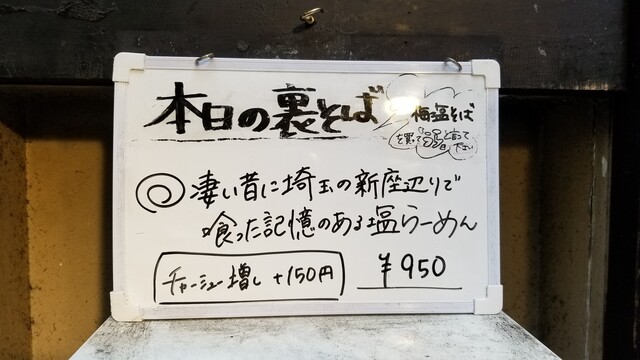 本日の裏そば
梅塩そば
を買って
と言って
下さい
凄い昔に埼玉の新座辺りで
喰った記憶のある塩らーめん
チャーシュー増し +150円
¥950